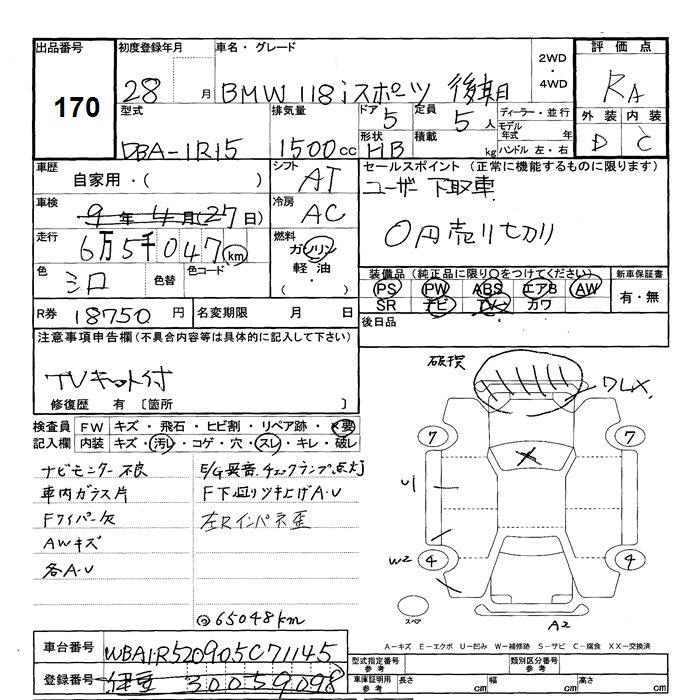 出品番号 初度登録年月 車名・グレード 2WD・4WD 評価点
170 28 月 BMW 118iスポーツ 後期 RA
型式 排気量 ドア 5 定員 5人 ディーラー・並行 外装 内装
DBA-1R15 1500cc 形状 HB 積載 kg モデル年式 年 ハンドル 左・右 D C
車歴 自家用・( ) シフト AT セールスポイント (正常に機能するものに限ります)
ユーザー下取車
車検 9年4月(27日) 冷房 AC
0円売り切り
走行 6万5千047km 燃料 ガソリン 軽油 ( ・ )
色 シロ 色替 色コード
装備品 (純正品に限り○をつけてください) 新車保証書
PS PW ABS エアB AW 有・無
SR ナビ TV カワ
R券 18750円 名変期限 月 日 後日品
注意事項申告欄(不具合内容等は具体的に記入して下さい)
TVキット付
修復歴 有 [箇所 ]
検査員記入欄 FW キズ・飛石・ヒビ割・リペア跡・ 要
内装 キズ・汚レ・コゲ・穴・スレ・キレ・破レ
ナビモニター不良 E/G異音、チェックランプ点灯
車内ガラス片 F下廻りツキ上げA・U
Fワイパー欠 左Rインパネ歪
AWキズ
各A・U
65048km
破損
ワレX
7 7
U
W2 4 4
スペア
A2
A-キズ E-エクボ U-凹み W-補修跡 S-サビ C-腐食 XX-交換済
車台番号 WBA1R520905C71145
登録番号 30059098
型式指定番号 参考 類別区分番号 参考
車庫証明用 参考 長さ cm 幅 cm 高さ cm